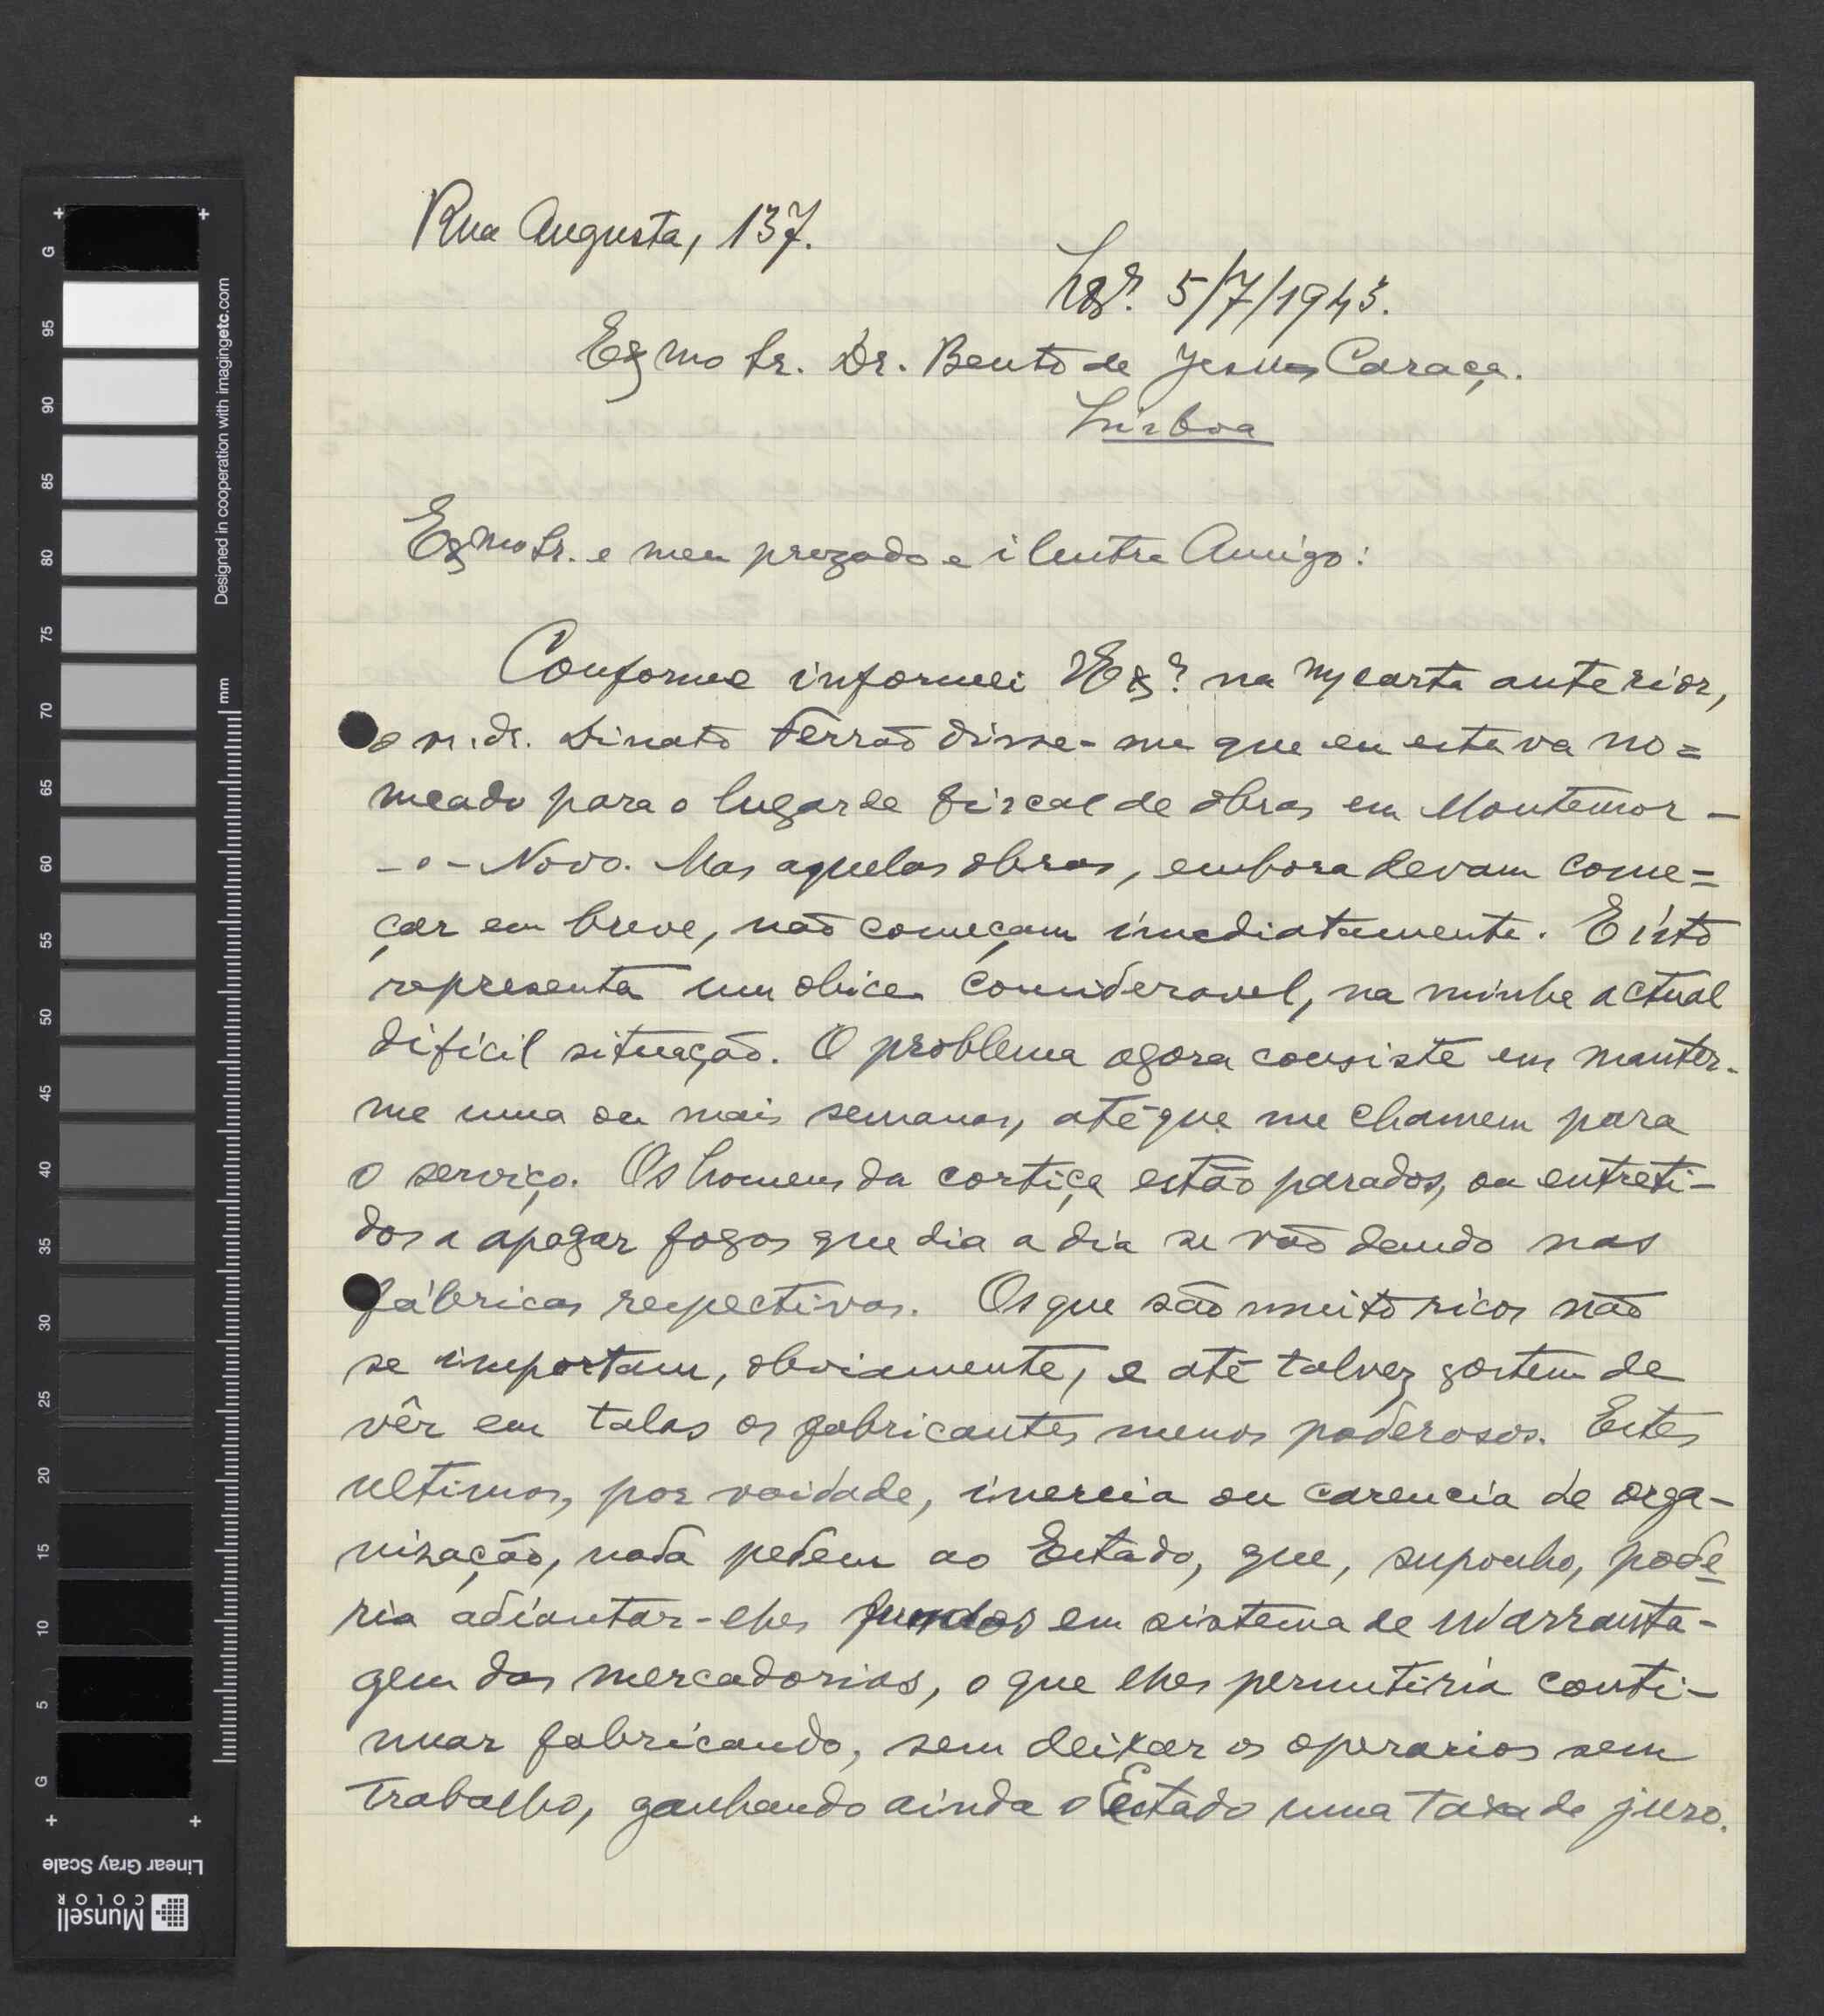 Rua Augusta, 137.
Lxª. 5/7/1943.
Exmo Sr. Dr. Bento de Jesus Caraça.
Lisboa
Exmo Sr. e meu prezado e ilustre Amigo:
Conforme informei VExª na m/carta anterior,
o sr. dr. Dinato Ferrão disse-me que eu estava no=
meado para o lugar de fiscal de obras em Montemor-
-o-Novo. Mas aquelas obras, embora devam come=
çar em breve, não começam imediatamente. E isto
representa um obice consideravel, na minha actual
difícil situação. O problema agora consiste em manter-
me uma ou mais semanas, até que me chamem para
o serviço. Os homens da cortiça estão parados, ou entreti-
dos a apagar fogos que dia a dia se vão dando nas
fábricas respectivas. Os que são muito ricos não
se importam, obviamente, e até talvez gostem de
vêr em talas os fabricantes menos poderosos. Estes
ultimos, por vaidade, inercia ou carencia de orga-
nização, nada pedem ao Estado, que, suponho, pode
ria adiantar-lhes fundos em sistema de warranta-
gem das mercadorias, o que lhes permitiria conti-
nuar fabricando, sem deixar os operarios sem
trabalho, ganhando ainda o Estado uma taxa de juro.
G
95
90
85
80
75
70
65
60
55
50
45
40
35
30
25
20
15
10
5
G
Designed in cooperation with imagingetc.com
mm
Linear Gray Scale
Munsell
COLOR